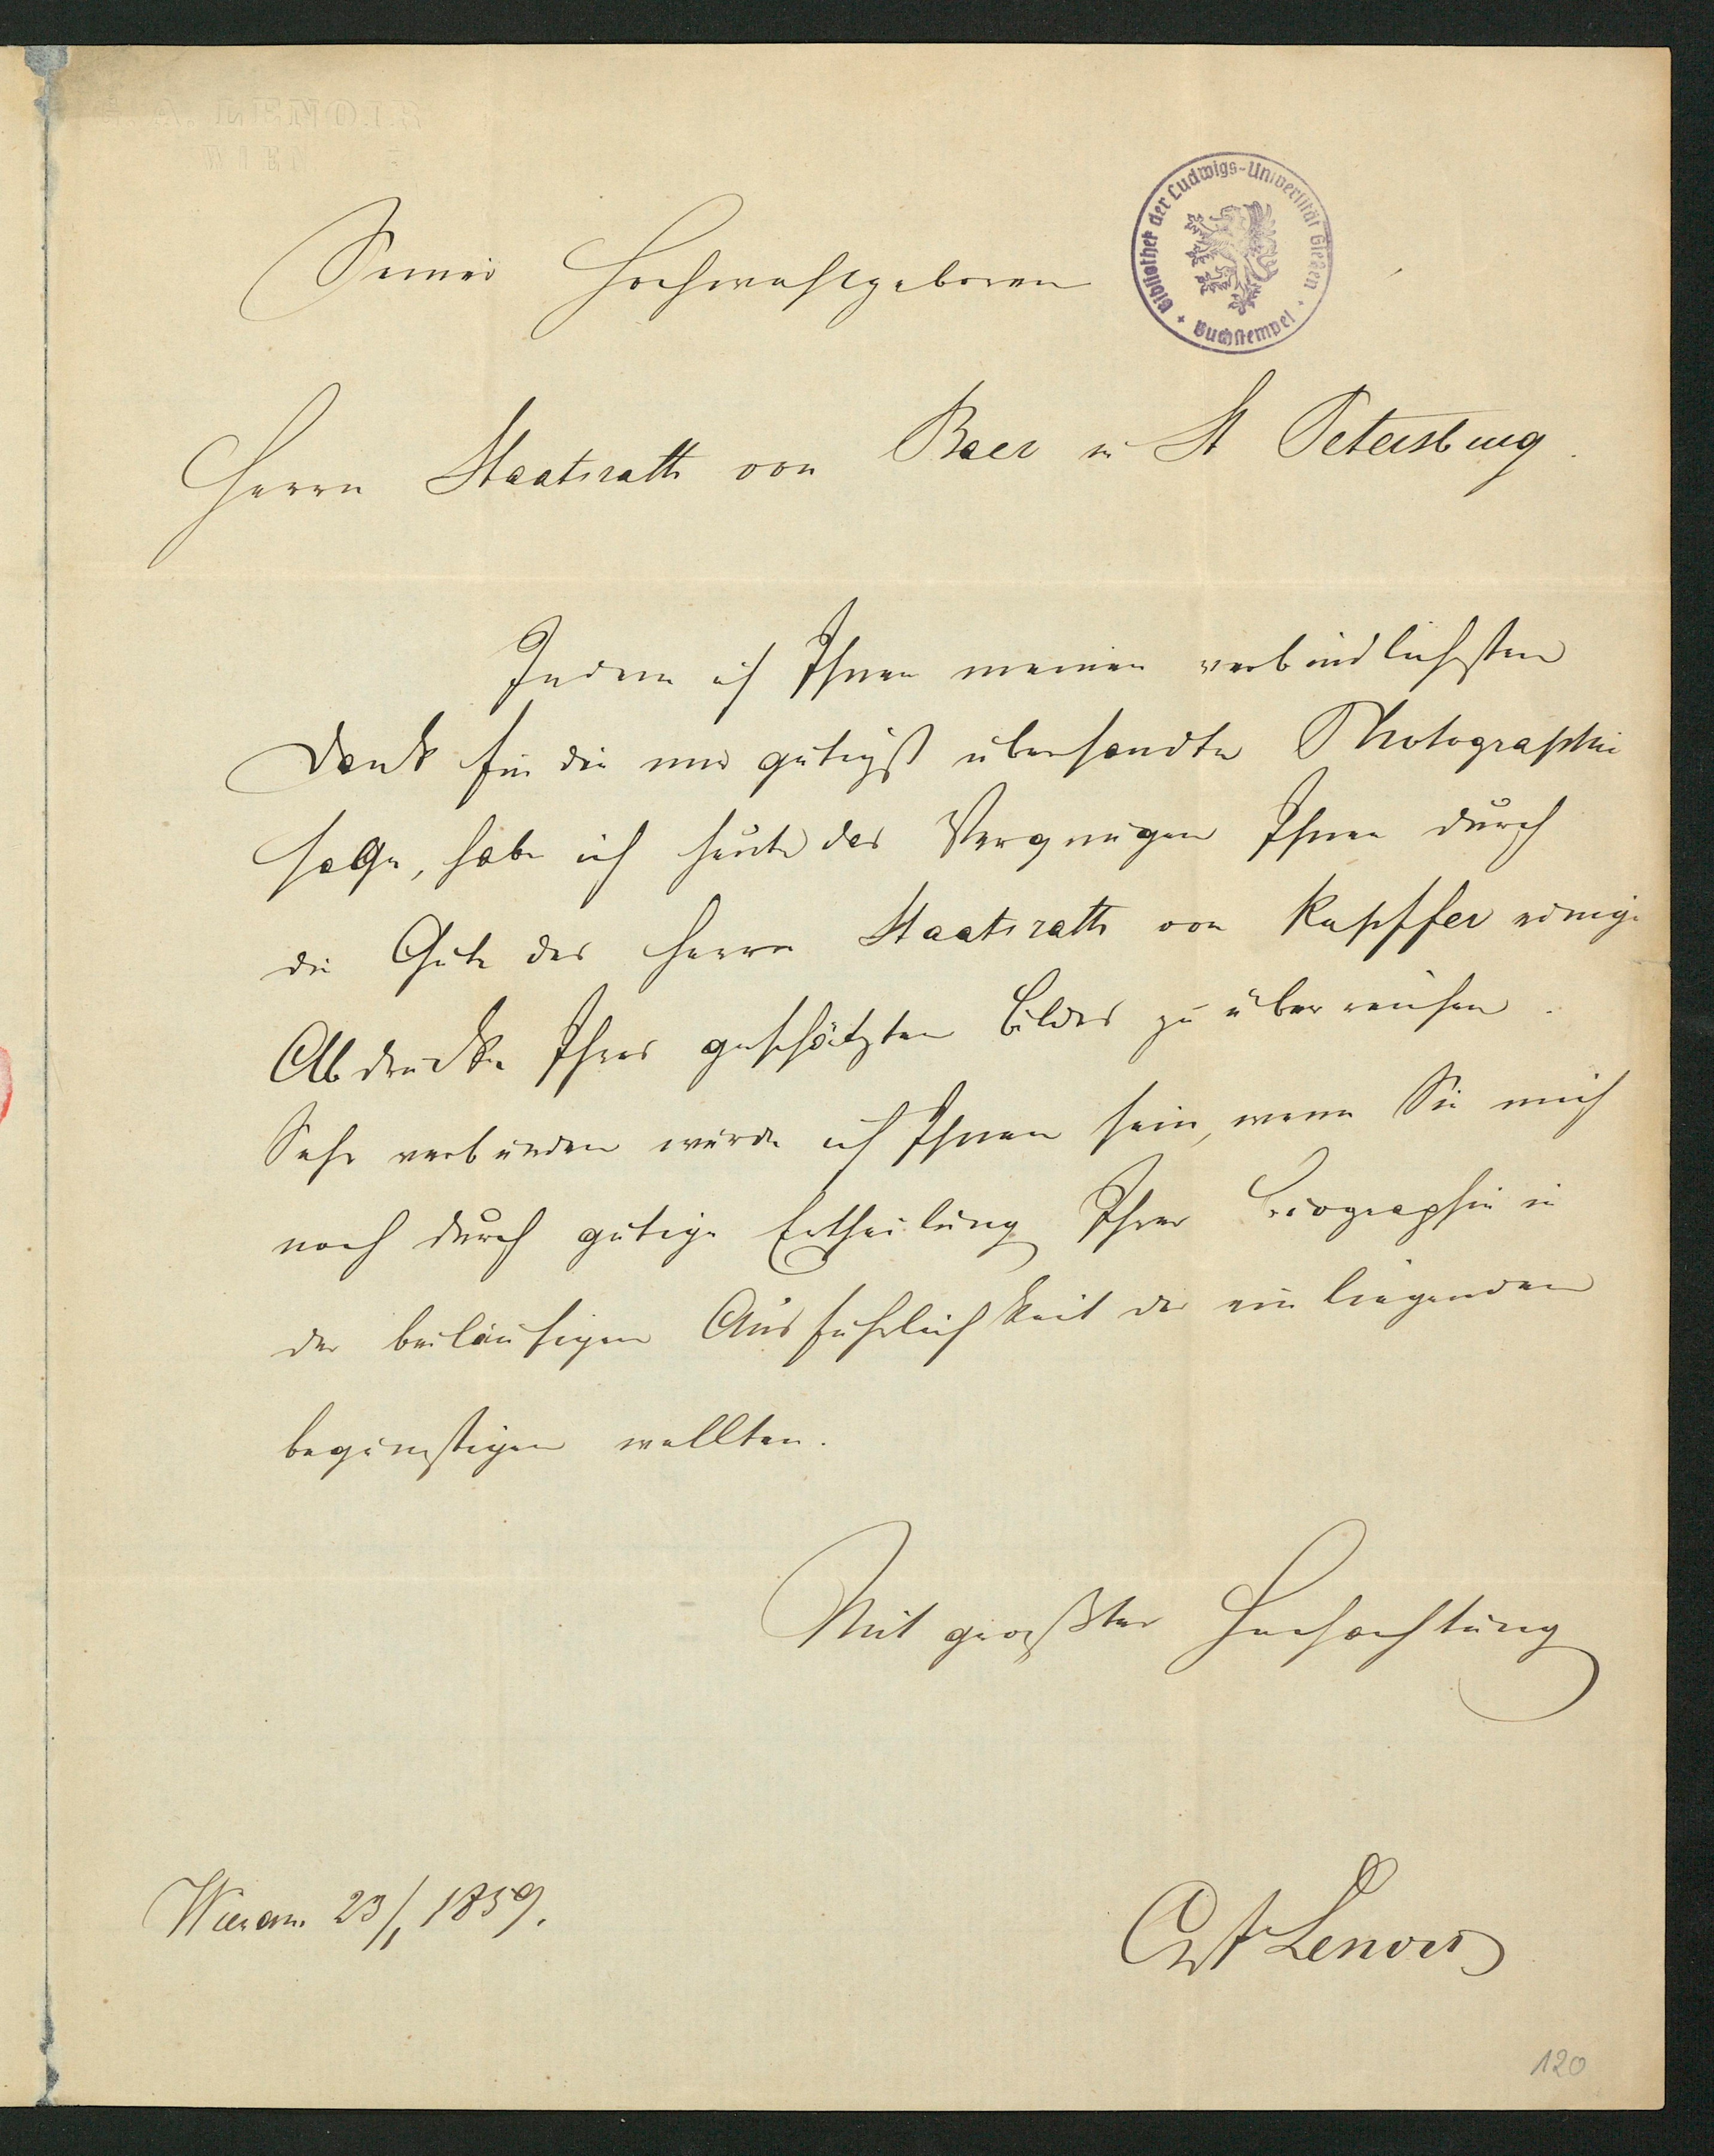 Seiner Hochwohlgeboren
Bibliothek der Ludwigs-Universität Gießen
Buchstempel
Herrn Staatsrath von Baer in St Petersburg.
Indem ich Ihnen meinen verbindlichsten
Dank für die mir gütigst übersandte Photographie
sage, habe ich heute das Vergnügen Ihnen durch
die Güte des Herrn Staatsrath von Kupffer einige
Abdrücke Ihres geschätzten Bildes zu überreichen.
Sehr verbunden würde ich Ihnen sein, wenn Sie mich
noch durch gütige Ertheilung Ihrer Biographie in
der beiläufigen Ausführlichkeit der ein liegenden
begünstigen wollten.
Mit größter Hochachtung
Wien am 23/1 1859.
Lenoir
120